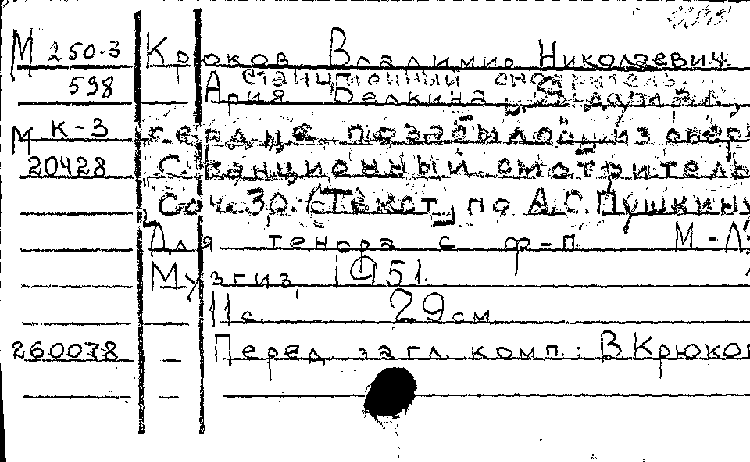 М 250-3 Крюков Владимир Николаевич
Станционный смотритель.
598 Ария Белкина
М К-3 сердце позабылось из оперы
20428 Станционный смотритель
Соч. 30. (Текст по А.С. Пушкину
Для тенора с ф-п. М-Л.,
Музгиз, 1951.
11с. 29 см
260078 Перед загл. комп.: В Крюков